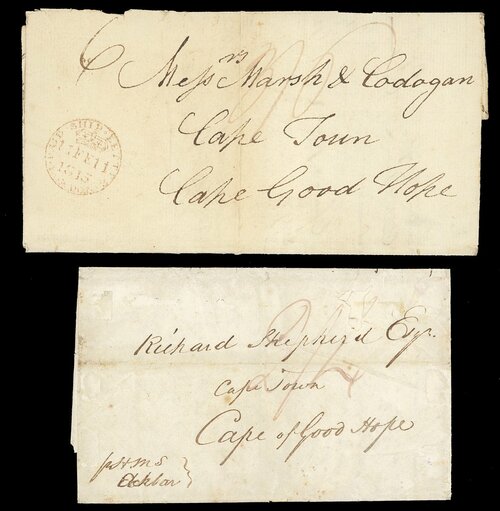 6
Messrs Marsh & Codogan
Cape Town
Cape Good Hope
SHIP LETTER
11 FE 11
1815
Richard Shepherd Esqr.
Cape Town
Cape of Good Hope
pr H.M.S
Akbar